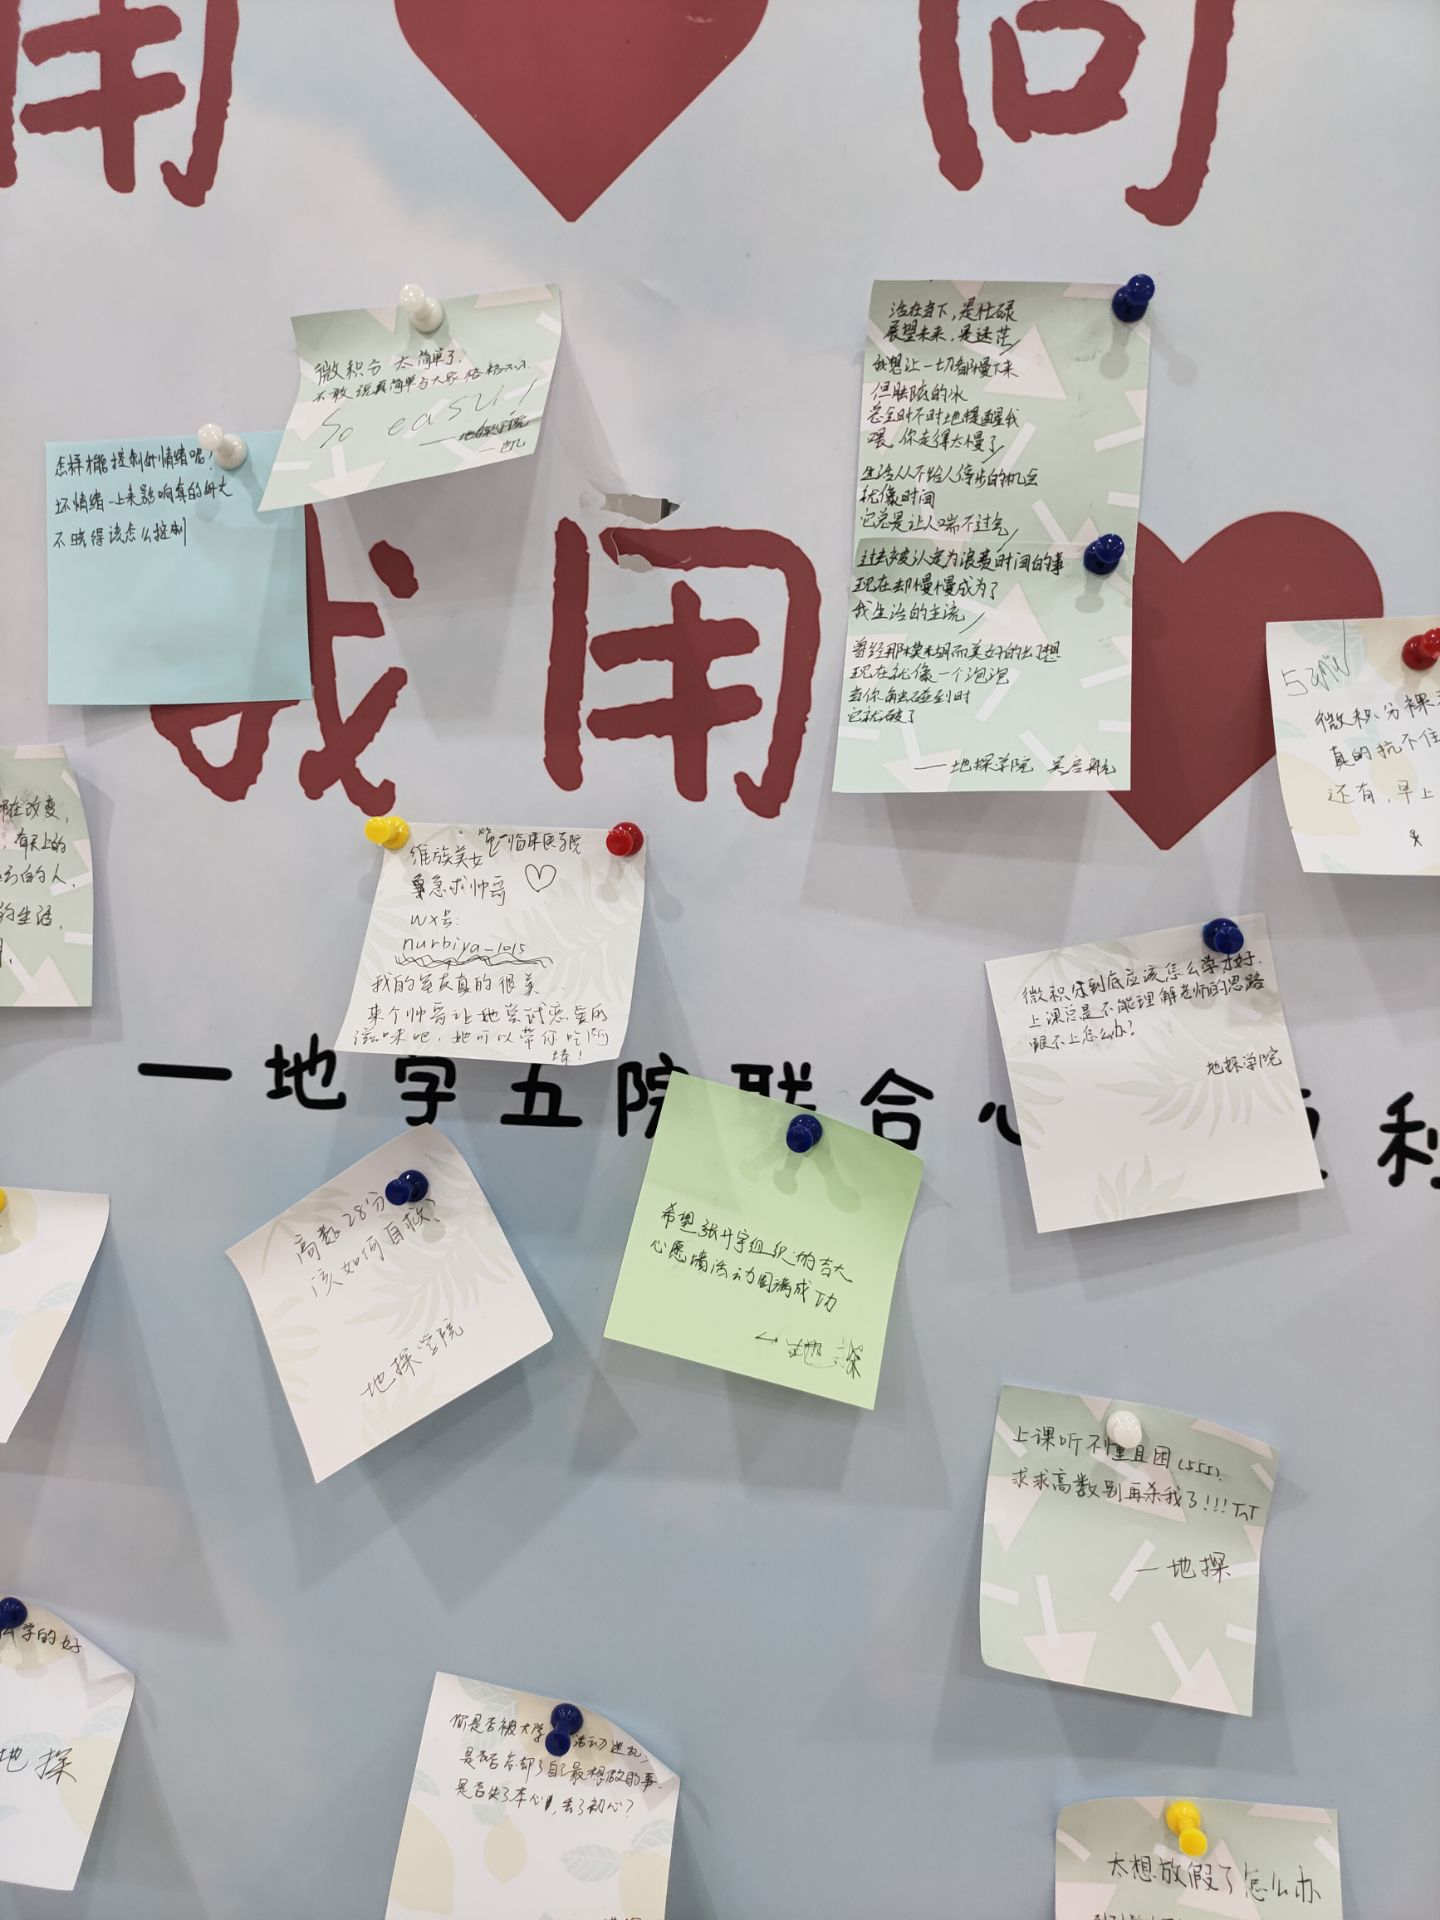 用 问
微积分 太简单了,
不敢说真简单与大家格格不入
So easy!
——地探学院
——凯
怎样才能控制好情绪呢?
坏情绪一上来影响真的好大
不晓得该怎么控制
活在当下,是忙碌
展望未来,是迷茫
我想让一切都慢下来
但脚底的冰
总会时不时地提醒我
喂,你走得太慢了
生活从不给人停步的机会
就像时间
它总是让人喘不过气
过去被认定为浪费时间的事
现在却慢慢成为了
我生活的主流
曾经那模糊而美好的幻想
现在就像一个泡泡
当你触碰到时
它就破了
——地探学院 吴启航
我用
微积分裸
真的抗不住
还有,早上
都在改变,
有天上的
的人,
的生活,
维族美女 第一临床医学院
急求帅哥
wx号:
nurbiya_1015
我的室友真的很美
来个帅哥让她尝试恋爱的
滋味吧,她可以带你吃阿
一地学五院联合心 利
微积分到底应该怎么学才好,
上课总是不能理解老师的思路
跟不上怎么办?
地探学院
高数28分
该如何自救?
地探学院
希望张升宇组织的吉大
心愿墙活动圆满成功
地探
上课听不懂且困(555)
求求高数别再杀我了!!!TnT
—地探
么学的好
地探
你是否被大学 活动迷乱,
是否忘却了自己最想做的事.
是否失了本心,丢了初心?
太想放假了怎么办